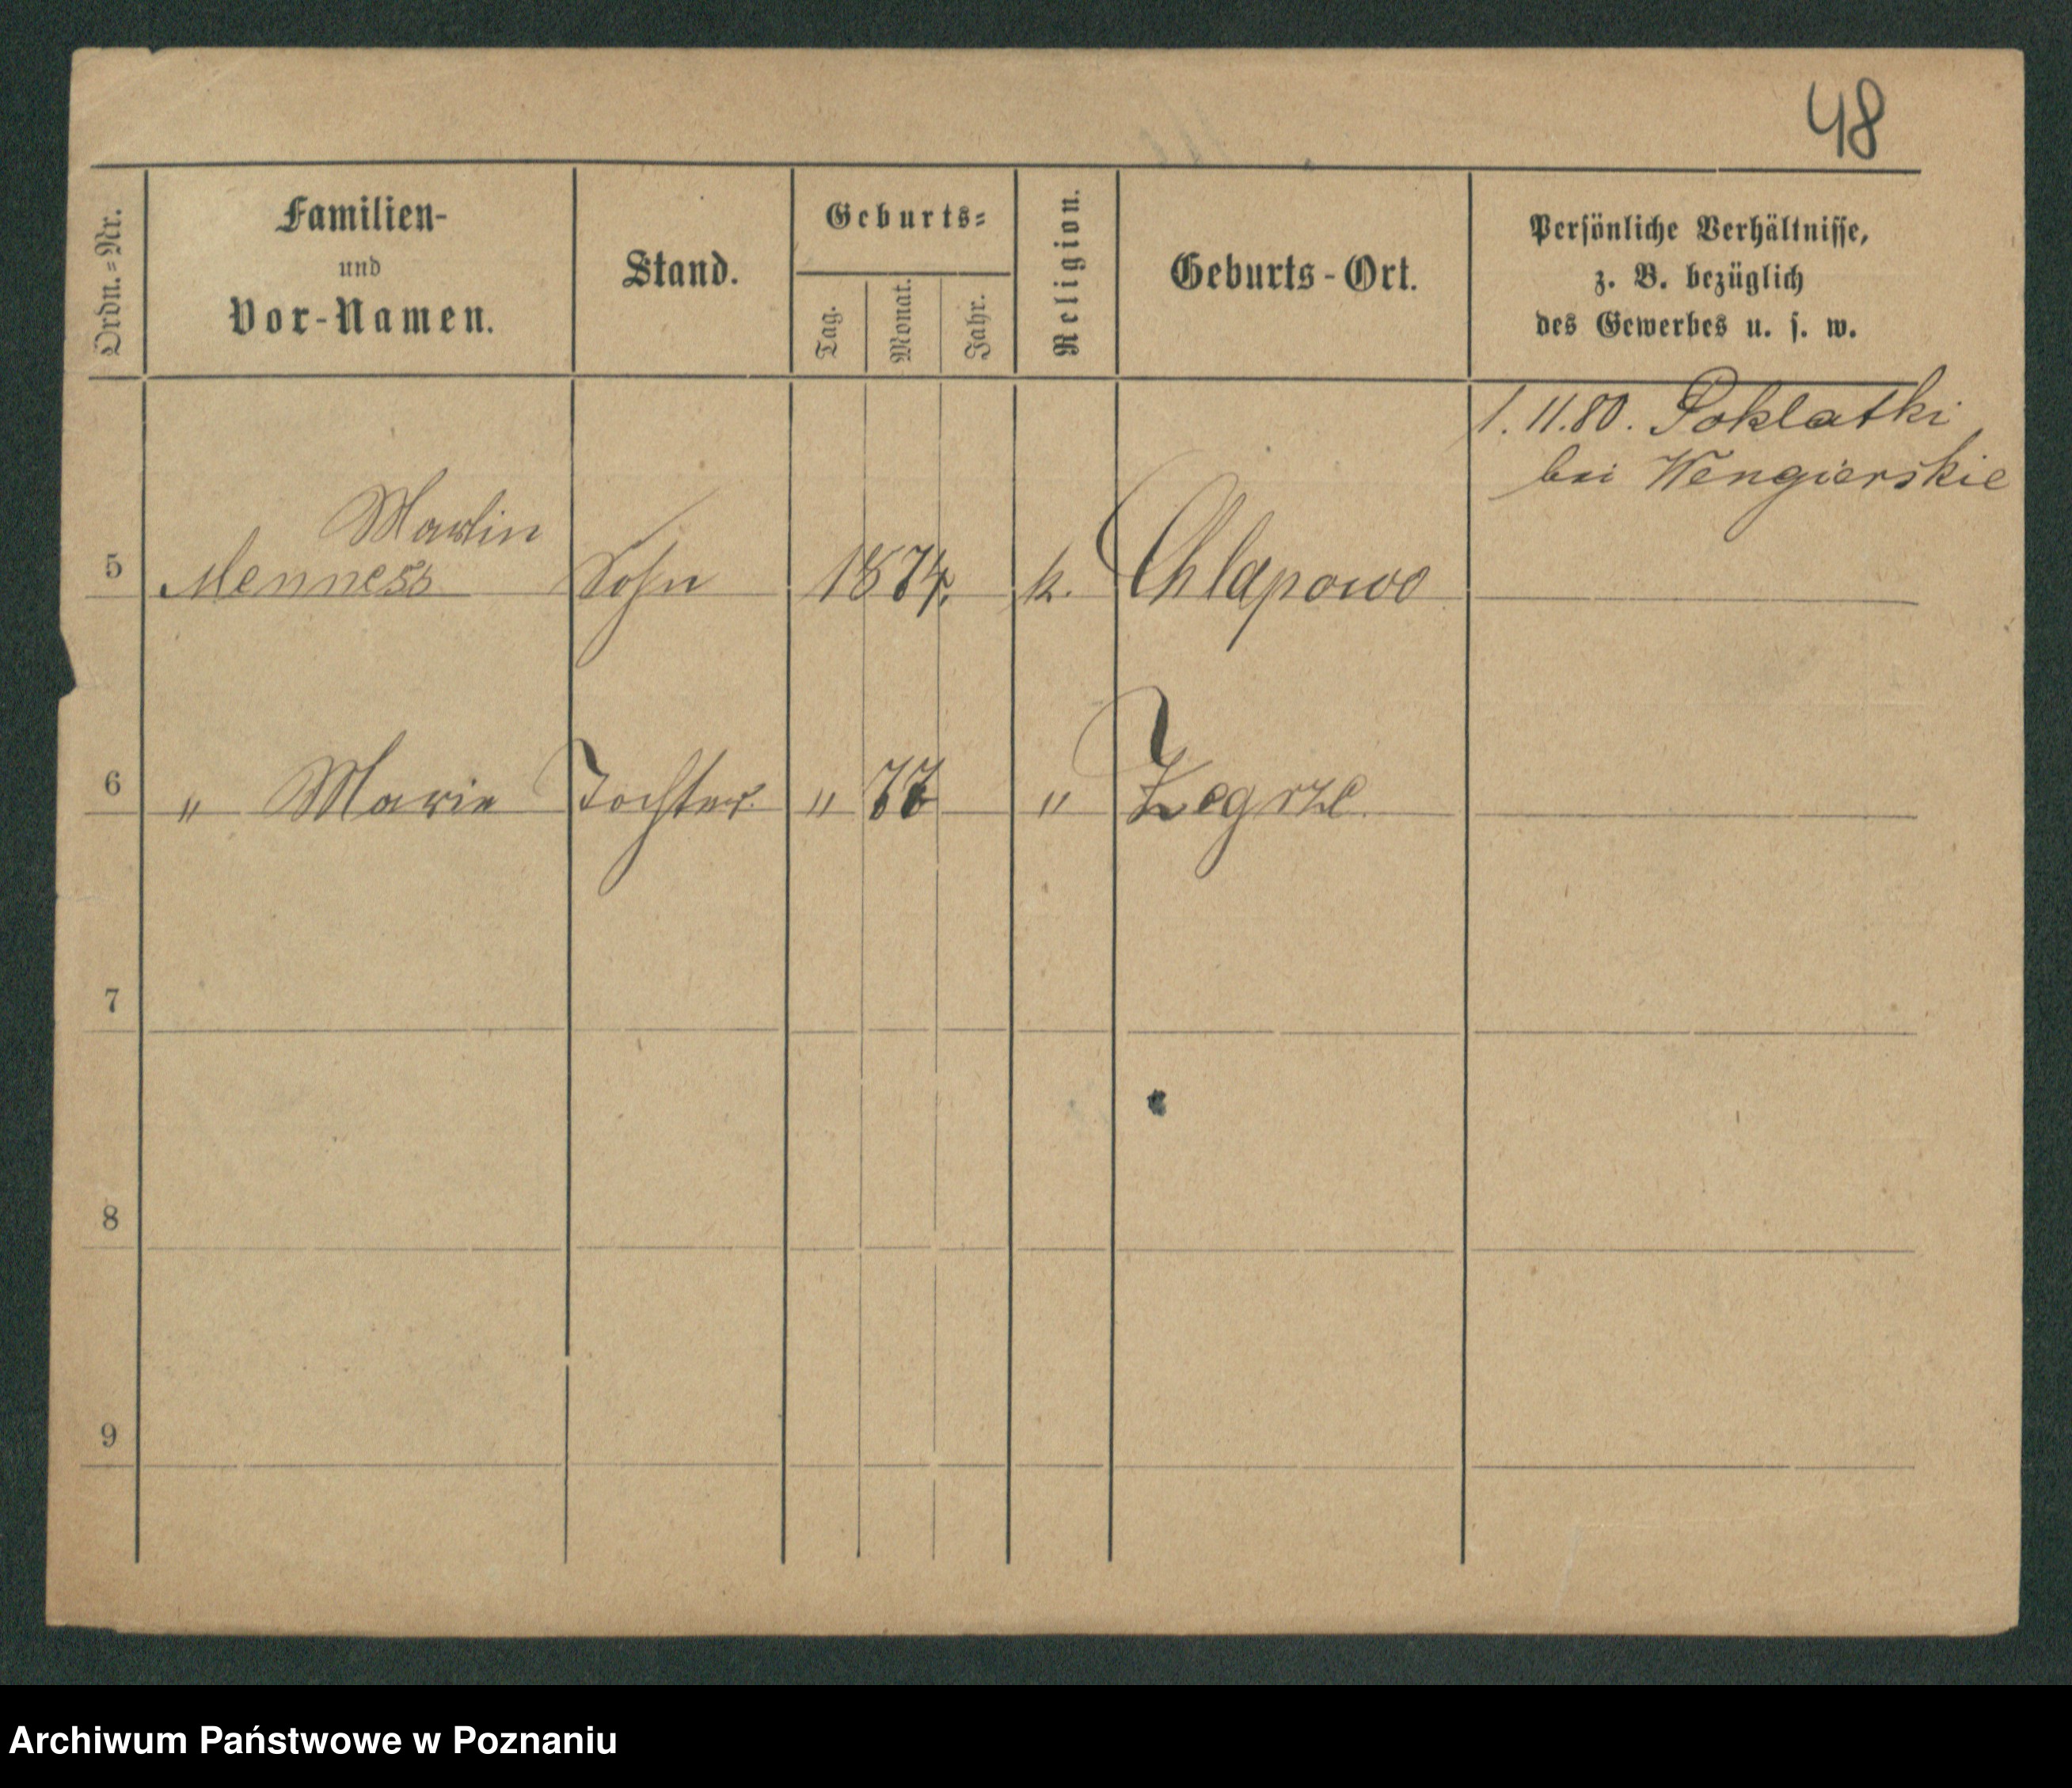 48
Ordn.=Nr.
Familien-
und
Vor-Namen.
Stand.
Geburts=
Tag.
Monat.
Jahr.
Religion.
Geburts-Ort.
Persönliche Verhältnisse,
z. B. bezüglich
des Gewerbes u. s. w.
1. 11. 80. Poklatki
bei Wengierskie
Martin
5 Menness Sohn 1874. k. Chlapowo
6 " Marie Tochter " 77 " Zegrze
7
8
9
Archiwum Państwowe w Poznaniu